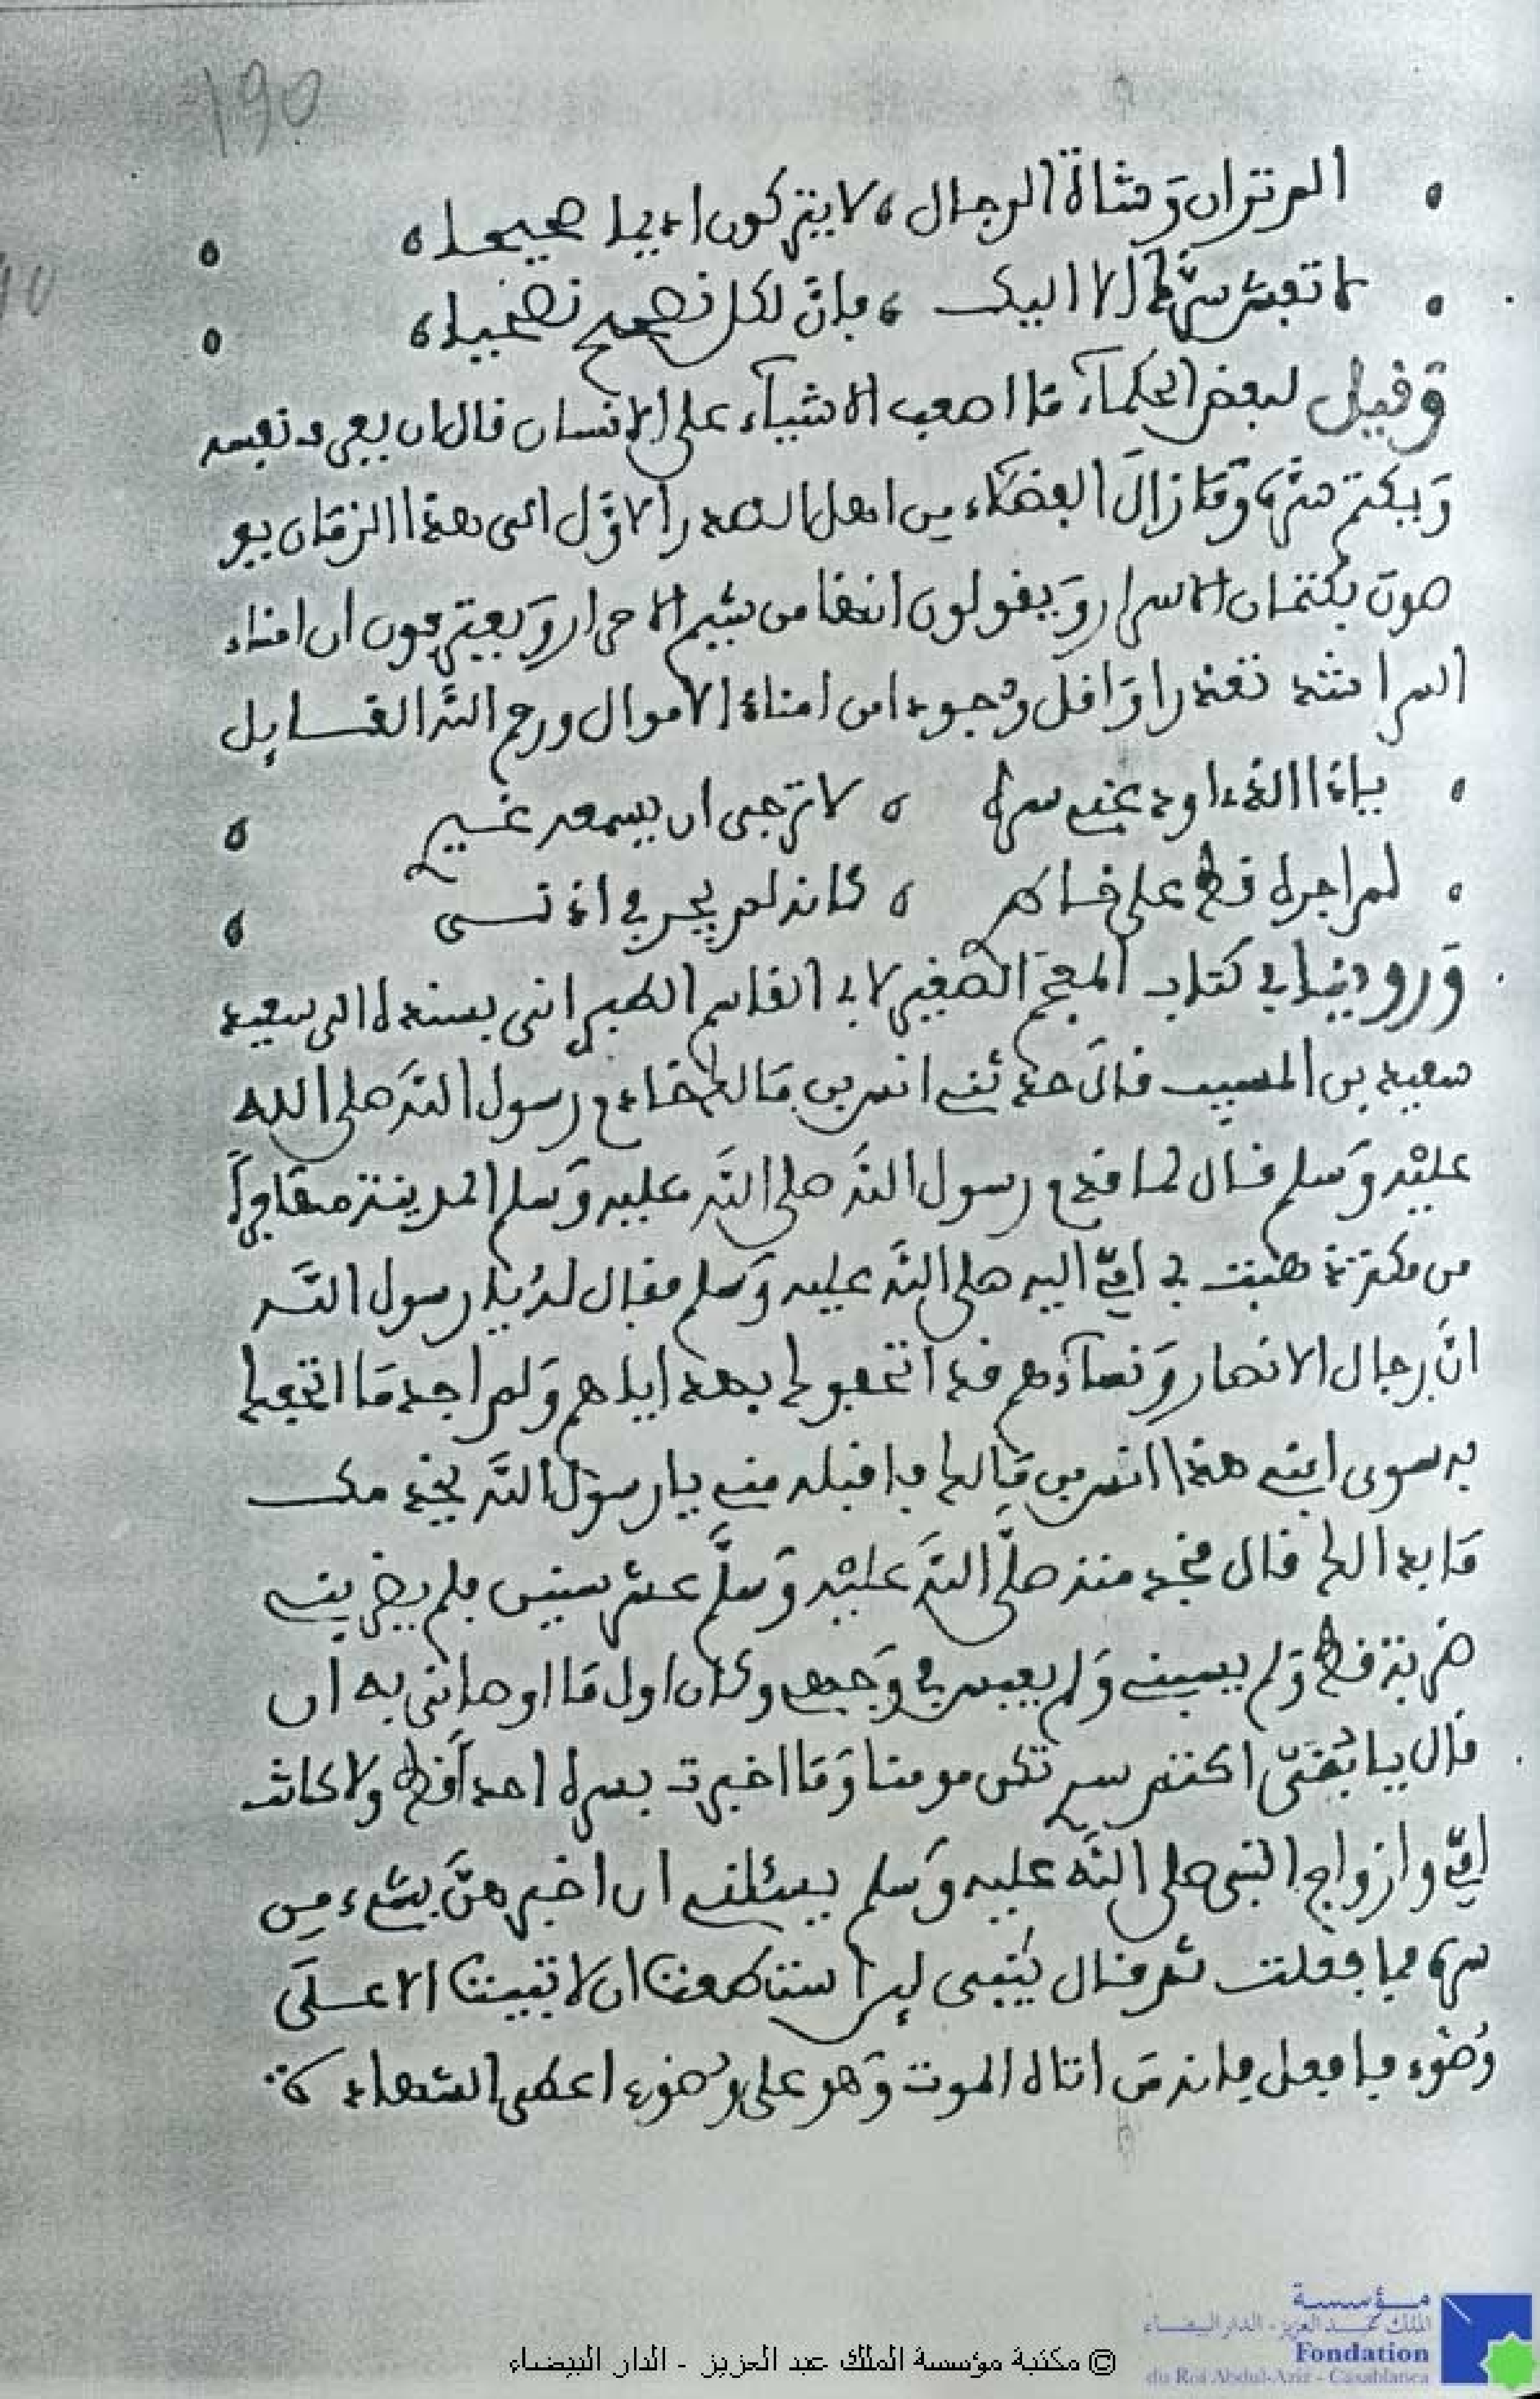 190
الم تر ان وشاة الرجال ، لا يتركون اديما صحيحا ،
لا تفش سرك الا اليك ، فإنّ لكل نصيح نصيحا ،
وقيل لبعض الحكماء ما اصعب الاشياء على الانسان قال ان يعرف نفسه
ويكتم سره وما زال الفضلاء من اهل الصدر الاول الى هذا الزمان يو
صون بكتمان الاسرار ويقولون انها من شيم الاحرار ويعترفون ان امناء
السر اشد تعذرا واقل وجودا من امناء الاموال ورحم الله القايل
ياذا الذي اودعني سره ، لا ترجى ان يسمعه غيري
لم اجره قط على ، كانه لم يجر في اذني
وروينا في كتاب المعجم الصغير لابي القاسم الطبراني بسنده الى سعيد
سعيد بن المسيب قال حدثني انس بن مالك خادم رسول الله صلى الله
عليه وسلم قال لما قدم رسول الله صلى الله عليه وسلم المدينة مهاجراً
من مكة ذهبت بي امي اليه صلى الله عليه وسلم فقال له يا رسول الله
انّ رجال الانصار ونساءهم قد اتحفوك بهداياهم ولم اجد ما اتحفك
به سوى ابني هذا انس بن مالك فاقبله مني يا رسول الله يخدمك
ما بدا لك قال فخدمته صلّى الله عليه وسلّم عشر سنين فلم يضربني
ضربة قط ولم يسبني ولم يعبس في وجهي وكان اول ما اوصاني به ان
قال يا بُنيّ اكتم سري تكن مومنا وما اخبرت بسره احداً قط ولا كانت
امّي وازواج النبي صلى الله عليه وسلم يسئلنني ان اخبرهنّ بشيء من
سره فما فعلت ثم قال يبني ان استطعت ان لا تبيت الا على
وُضوء فافعل فانه من اتاه الموت وهو على وضوء اعطي الشهادة
© مكتبة مؤسسة الملك عبد العزيز - الدار البيضاء
مؤسسة
الملك عبد العزيز - الدار البيضاء
Fondation
du Roi Abdul-Aziz - Casablanca